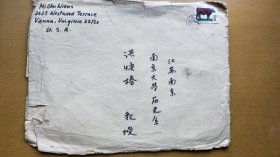 Mi Chu Wiens
2025 Westwood Terrace
Vienna, Virginia 22180
U. S. A.
江苏南京
南京大学历史系
洪煥椿 教授